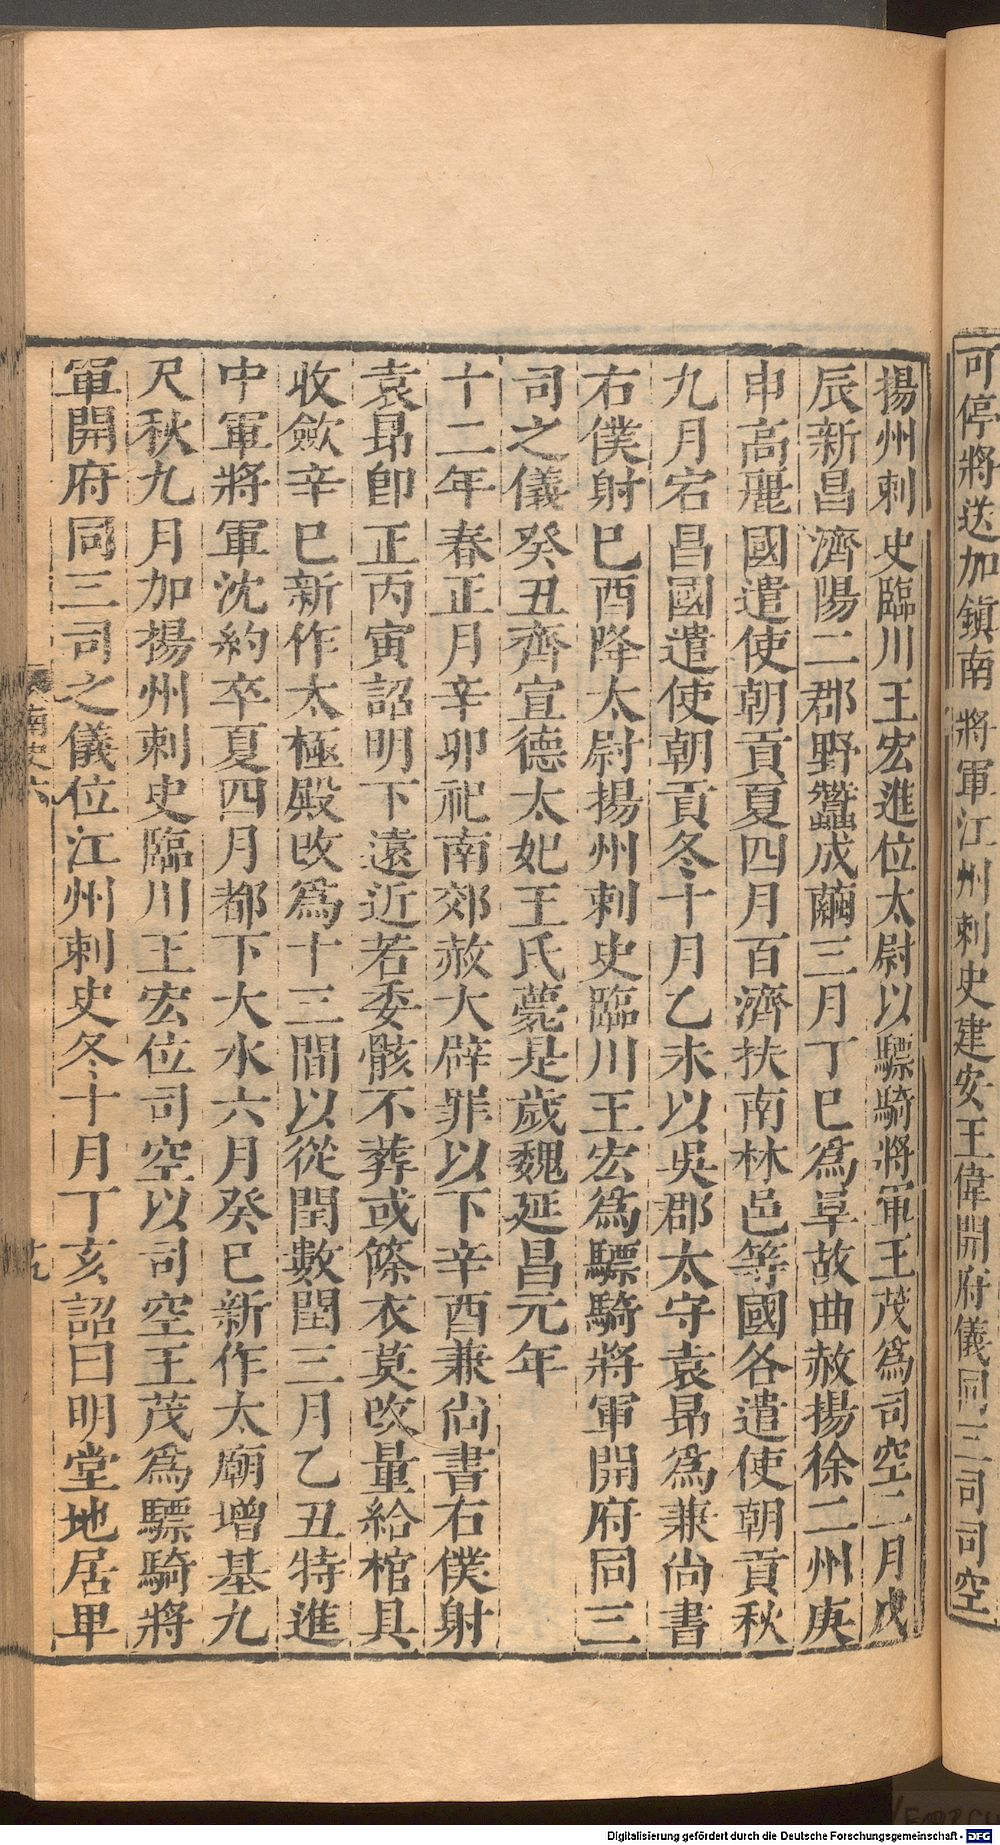 可停將送加鎮南將軍江州刺史建安王偉開府儀同三司司空
揚州刺史臨川王宏進位太尉以驃騎將軍王茂爲司空二月戊
辰新昌濟陽二郡野蠶成繭三月丁巳爲旱故曲赦揚徐二州庚
申高麗國遣使朝貢夏四月百濟扶南林邑等國各遣使朝貢秋
九月宕昌國遣使朝貢冬十月乙未以吳郡太守袁昂爲兼尙書
右僕射巳酉降太尉揚州刺史臨川王宏爲驃騎將軍開府同三
司之儀癸丑齊宣德太妃王氏薨是歲魏延昌元年
十二年春正月辛卯祀南郊赦大辟罪以下辛酉兼尙書右僕射
袁昂卽正丙寅詔明下遠近若委骸不葬或篨衣莫改量給棺具
收斂辛巳新作太極殿改爲十三間以從閏數閏三月乙丑特進
中軍將軍沈約卒夏四月都下大水六月癸巳新作太廟增基九
尺秋九月加揚州刺史臨川王宏位司空以司空王茂爲驃騎將
軍開府同三司之儀位江州刺史冬十月丁亥詔曰明堂地居卑
南史六
十九
Digitalisierung gefördert durch die Deutsche Forschungsgemeinschaft - DFG